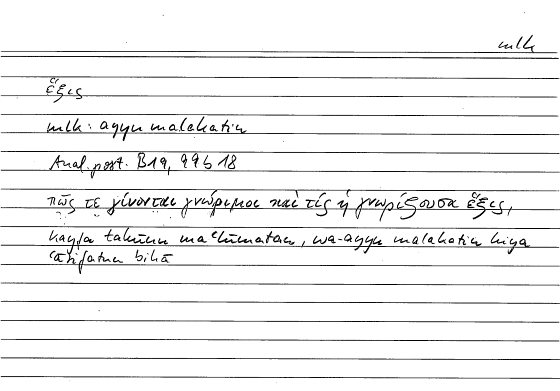 mlk
ἕξις
mlk: ayyu malakatin
Anal. post. B19, 99b18
πῶς τε γίνονται γνώριμοι καὶ τίς ἡ γνωρίζουσα ἕξις,
kayfa takūnu maʿlūmatan, wa-ayyu malakatin hiya
ʿārifatun bihā